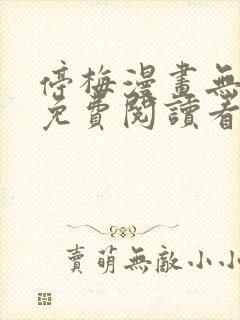 停梅漫畫無
免費閱讀看
賣萌無敵小小